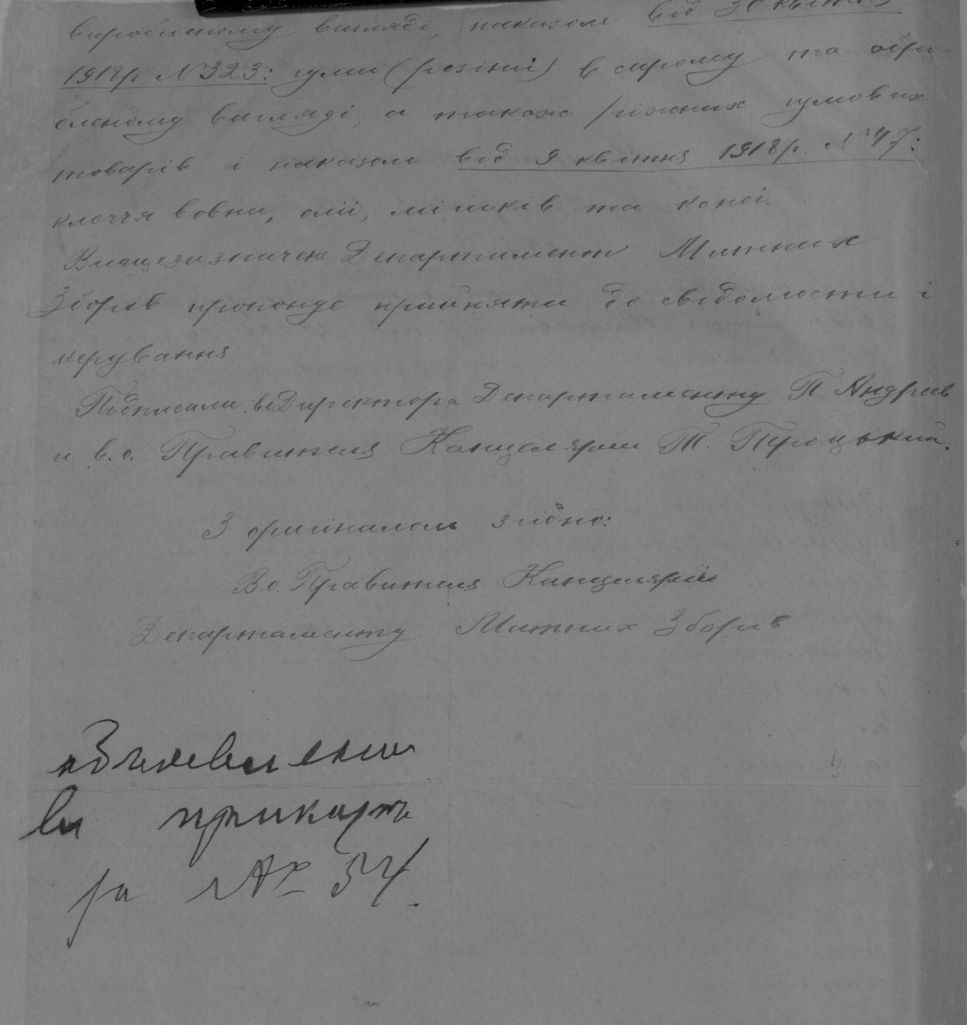 виробленому вигляді, наказом від 30 квітня
1918 р. № 323: гуми (резіни) в сирому та обро-
бленому вигляді, а також ріжних гумових
товарів і наказом від 9 квітня 1918 р. № 47:
клоччя вовни, олії, мішків та коней.
Вищезазначене Департамент Митних
Зборів пропонує прийняти до свідомости і
керування.
Підписали: в. Директора Департаменту П. Андрієв
и в. о. Правителя Канцелярії Т.
З оригіналом згідно:
В о. Правителя Канцелярії
Департаменту Митних Зборів
Объявлено
в приказе
за № 34.